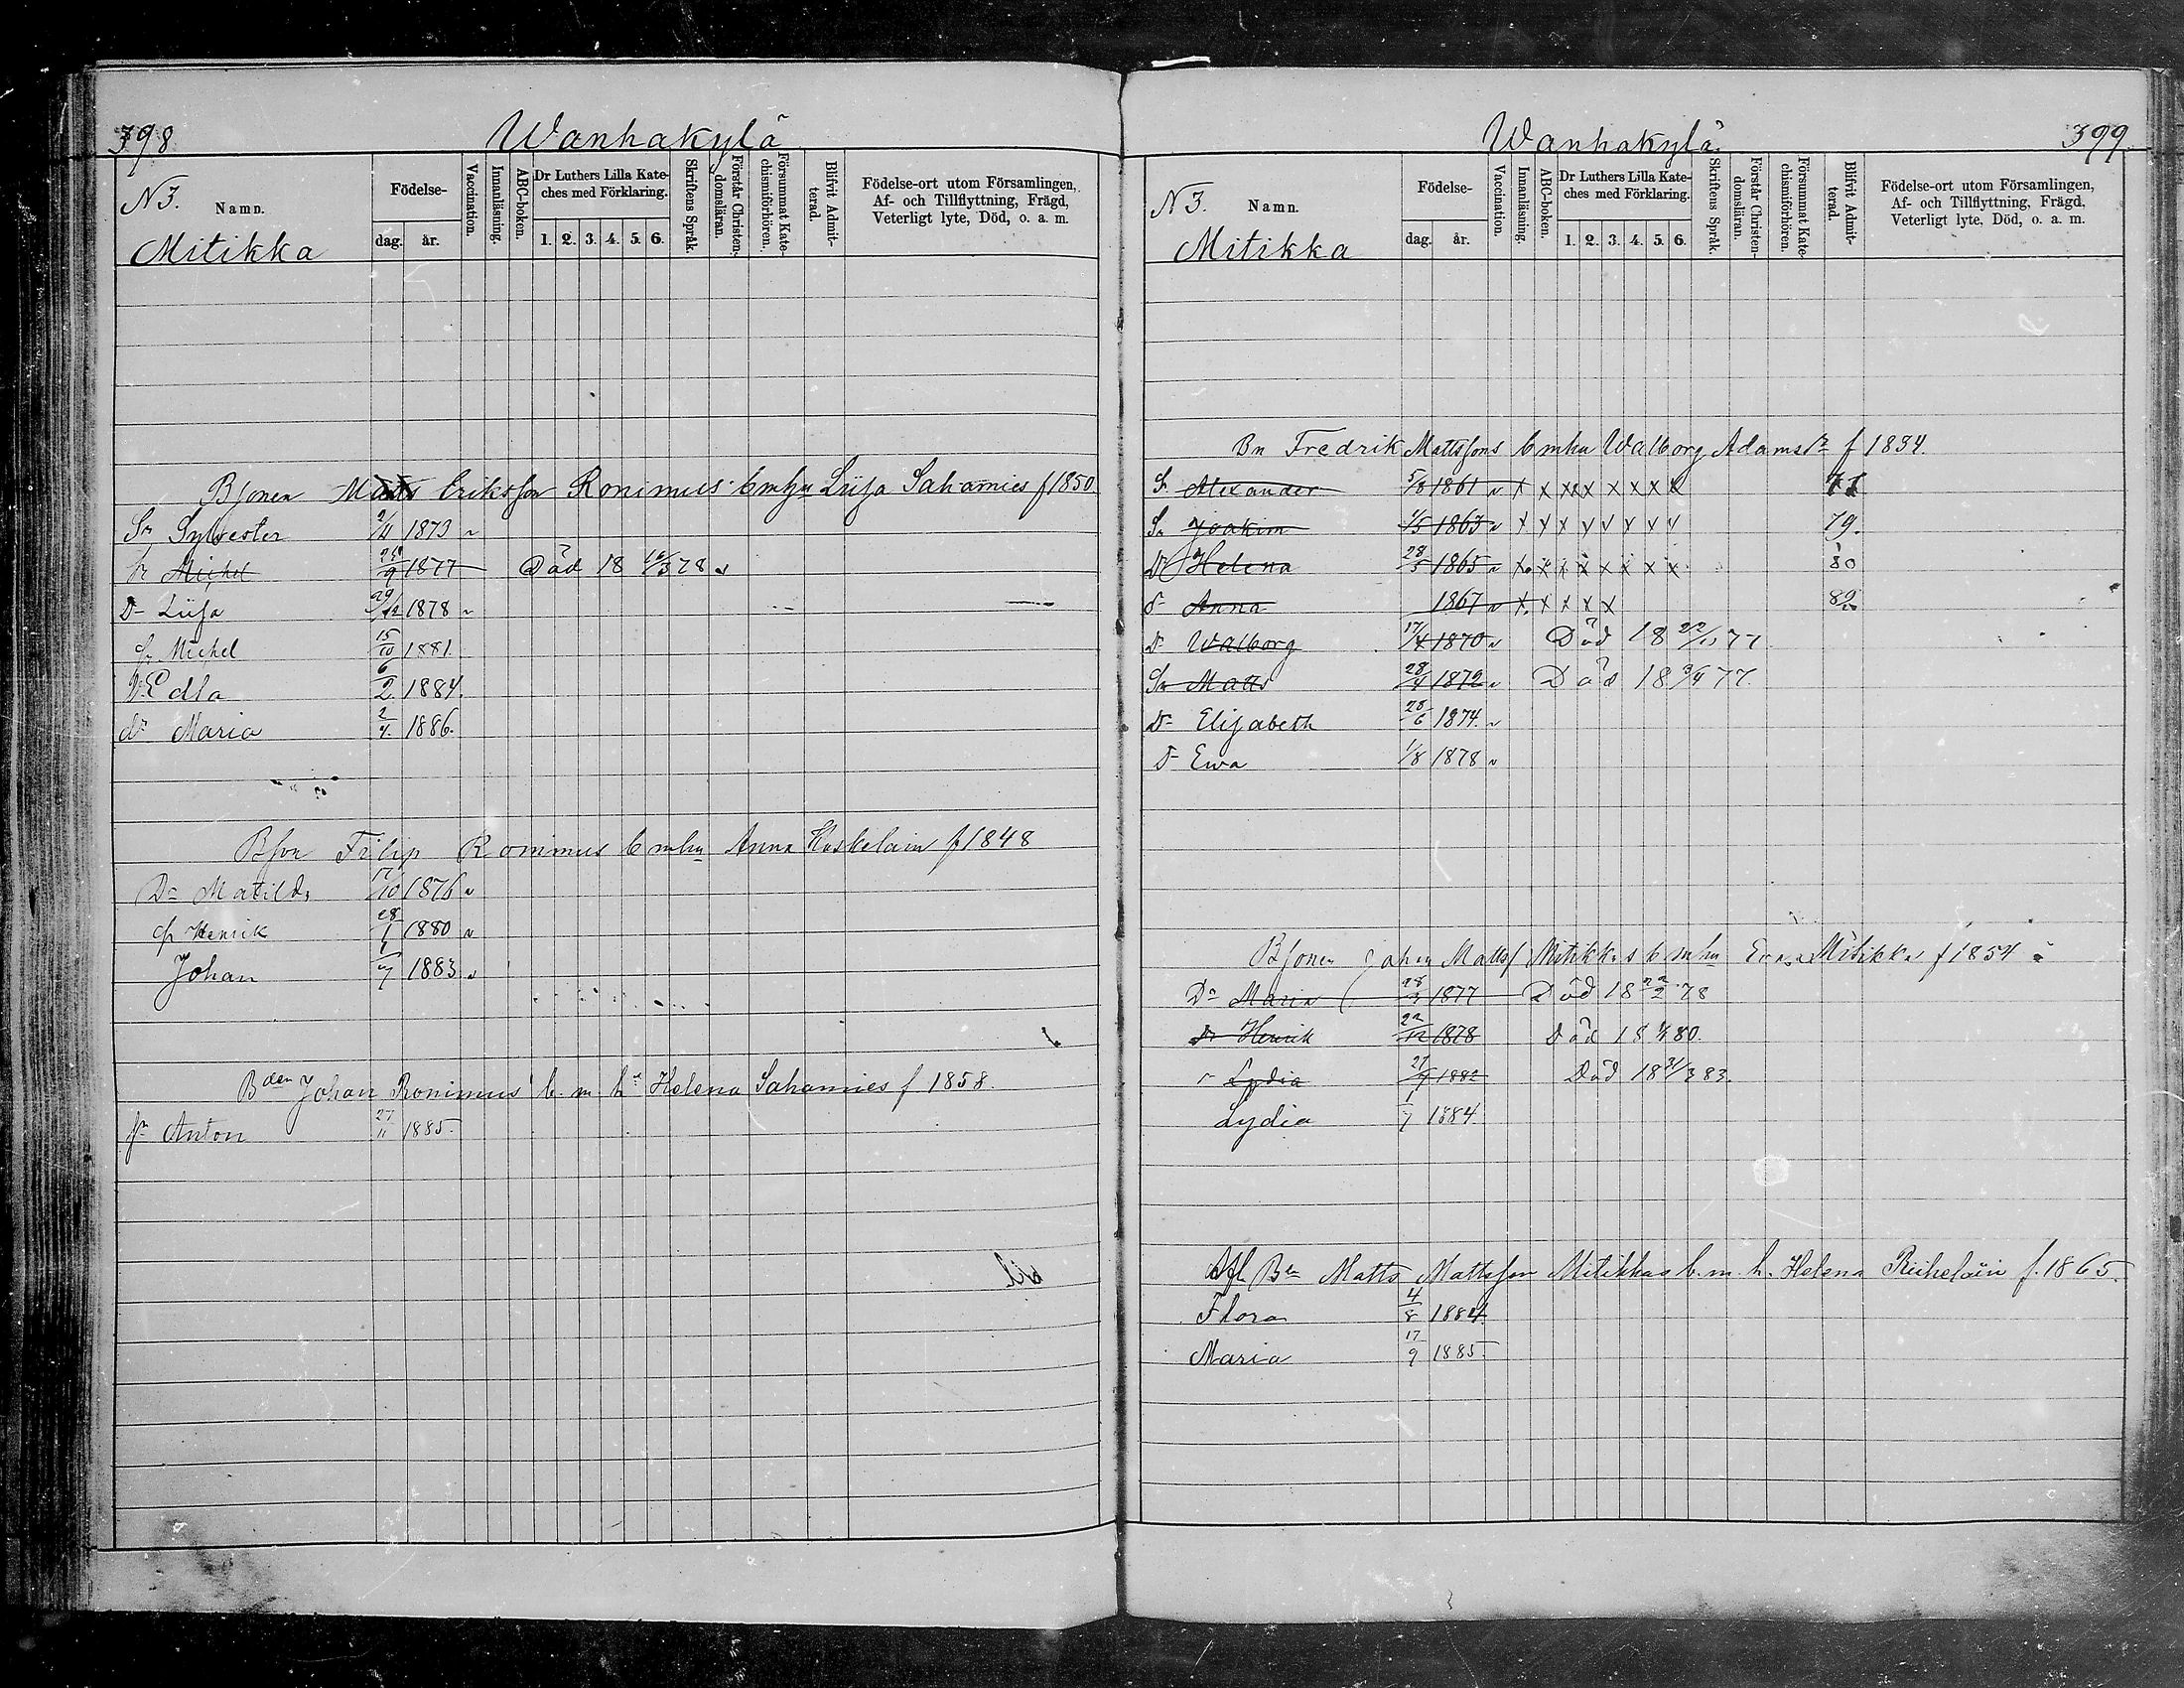 398.
Wanhakylä
N 3. Namn.
Mitikka
Födelse-
dag. år.
Vaccination.
Innanläsning.
ABC-boken.
Dr Luthers Lilla Kate-
ches med Förklaring.
1. 2. 3. 4. 5. 6.
Skriftens Språk.
Förstår Christen-
domsläran.
Försummat Kate-
chismiförhören.
Blifvit Admit-
terad.
Födelse-ort utom Församlingen,
Af- och Tillflyttning, Frägd,
Veterligt lyte, Död, o. a. m.
Bsonen Matts Eriksson Ronimus b mhu Liisa Sahamies f 1850
Sn Sylvester 2/11 1873
Sn Michel 1877 Död 18 16/3 78
Dr Liisa 29/12 1878
Sn Michel 15/10 1881.
Dr Edla 6/2 1884.
dr Maria 2/4 1886.
Bson Filip Ronimus b mhu Anna f 1848
Dr Matilda 17/10 1876
Sn Henrik 28/1 1880
Johan 1/7 1883
Bden Johan Ronimus b. m. h. Helena Sahamies f 1858.
Sn Anton 27/11 1885.
Wanhakylä
399.
N 3. Namn.
Mitikka
Födelse-
dag. år.
Vaccination.
Innanläsning.
ABC-boken.
Dr Luthers Lilla Kate-
ches med Förklaring.
1. 2. 3. 4. 5. 6.
Skriftens Språk.
Förstår Christen-
domsläran.
Försummat Kate-
chismiförhören.
Blifvit Admit-
terad.
Födelse-ort utom Församlingen,
Af- och Tillflyttning, Frägd,
Veterligt lyte, Död, o. a. m.
Bn Fredrik Mattssons b mhu Walborg Adamsdr f 1834.
S. Alexander 5/8 1861 x x x x x x x x x
Sn Joakim 1/5 1863 x x x x x x x x 79.
Dr Helena 28/5 1865 x x x x x x x x 80
Dr Anna 1867 x x x x x 82
Dr Walborg 17/4 1870 Död 18 22/11 77
Sn Matts 28/4 1872 Död 18 3/4 77.
Dr Elisabeth 28/6 1874.
Dr Ewa 1/8 1878
Bsonen Johan Matts Mitikkas b mhu Mitikka f 1854
Dr Maria 28/3 1877 Död 18 22/2 78
Henrik 22/12 1878 Död 18 80.
Lydia 1882 Död 18 31/3 83.
Lydia 1/7 1884.
Afl Bn Matts Mattsson Mitikkas b. m. h. Helena f. 1865.
Flora 4/8 1884
Maria 17/9 1885.